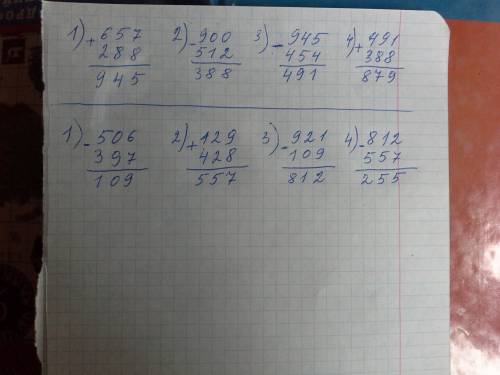 1) + 657 2) - 900 3) - 945 4) + 491
288 512 454 388
945 388 491 879
1) - 506 2) + 129 3) - 921 4) - 812
397 428 109 557
109 557 812 255